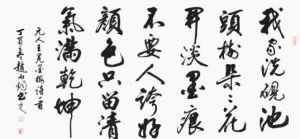 我家洗硯池
頭樹朵々花
開淡墨痕
不要人誇好
顏色只留清
氣滿乾坤
元人王冕墨梅詩一首
丁酉冬趙山